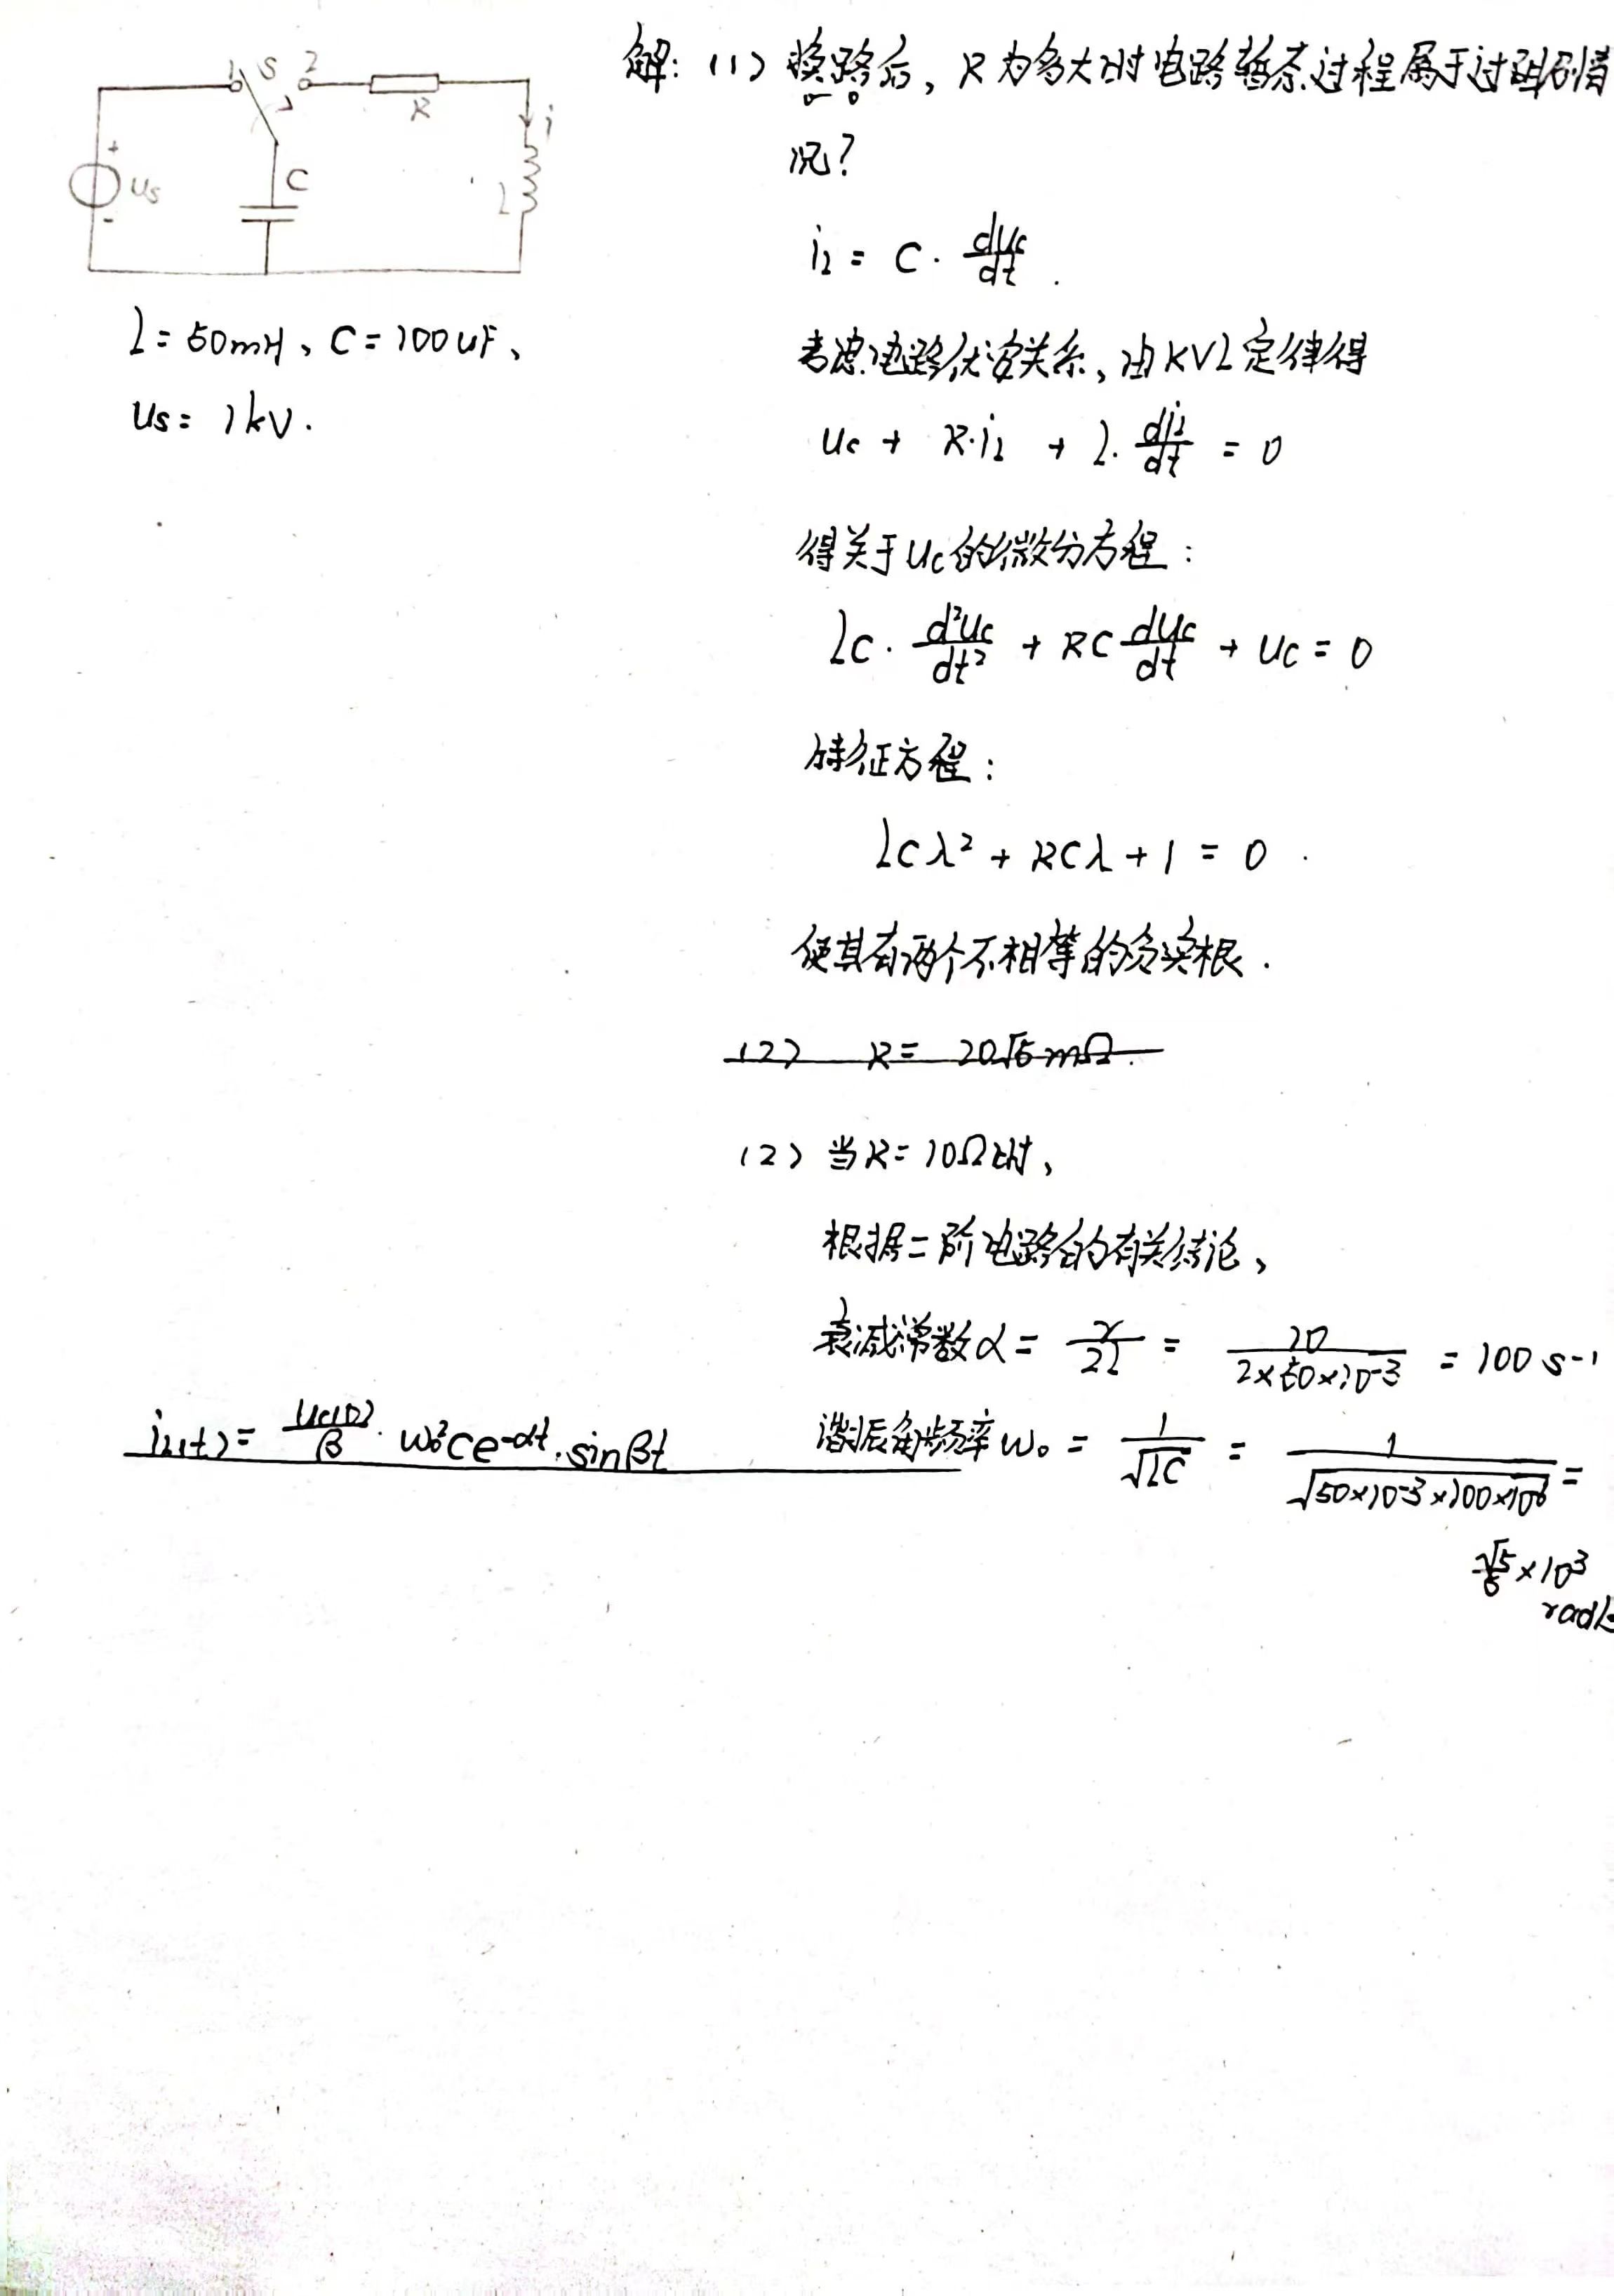 1 S 2
R
i
+
us
-
C
L
L = 50mH、C = 100uF、
us = 1kV.
解: (1) 换路后, R为多大时电路暂态过程属于过阻尼情
况?
i₂ = C · duc/dt .
考虑电路伏安关系, 由KVL定律得
uc + R·i₂ + L· di₂/dt = 0
得关于uc的微分方程:
LC · d²uc/dt² + RC duc/dt + uc = 0
特征方程:
LCλ² + RCλ + 1 = 0 .
使其有两个不相等的负实根.
(2) R = 20√5 mΩ.
(2) 当R = 10Ω时、
根据二阶电路的有关结论、
衰减常数α = r/2L = 10/2×50×10-3 = 100 s-1
谐振角频率ω₀ = 1/√LC = 1/√50×10-3×100×10-6 =
√5/5 × 10³
rad/s
i₂(t) = uc(0)/β · ω₀²Ce-αt · sinβt